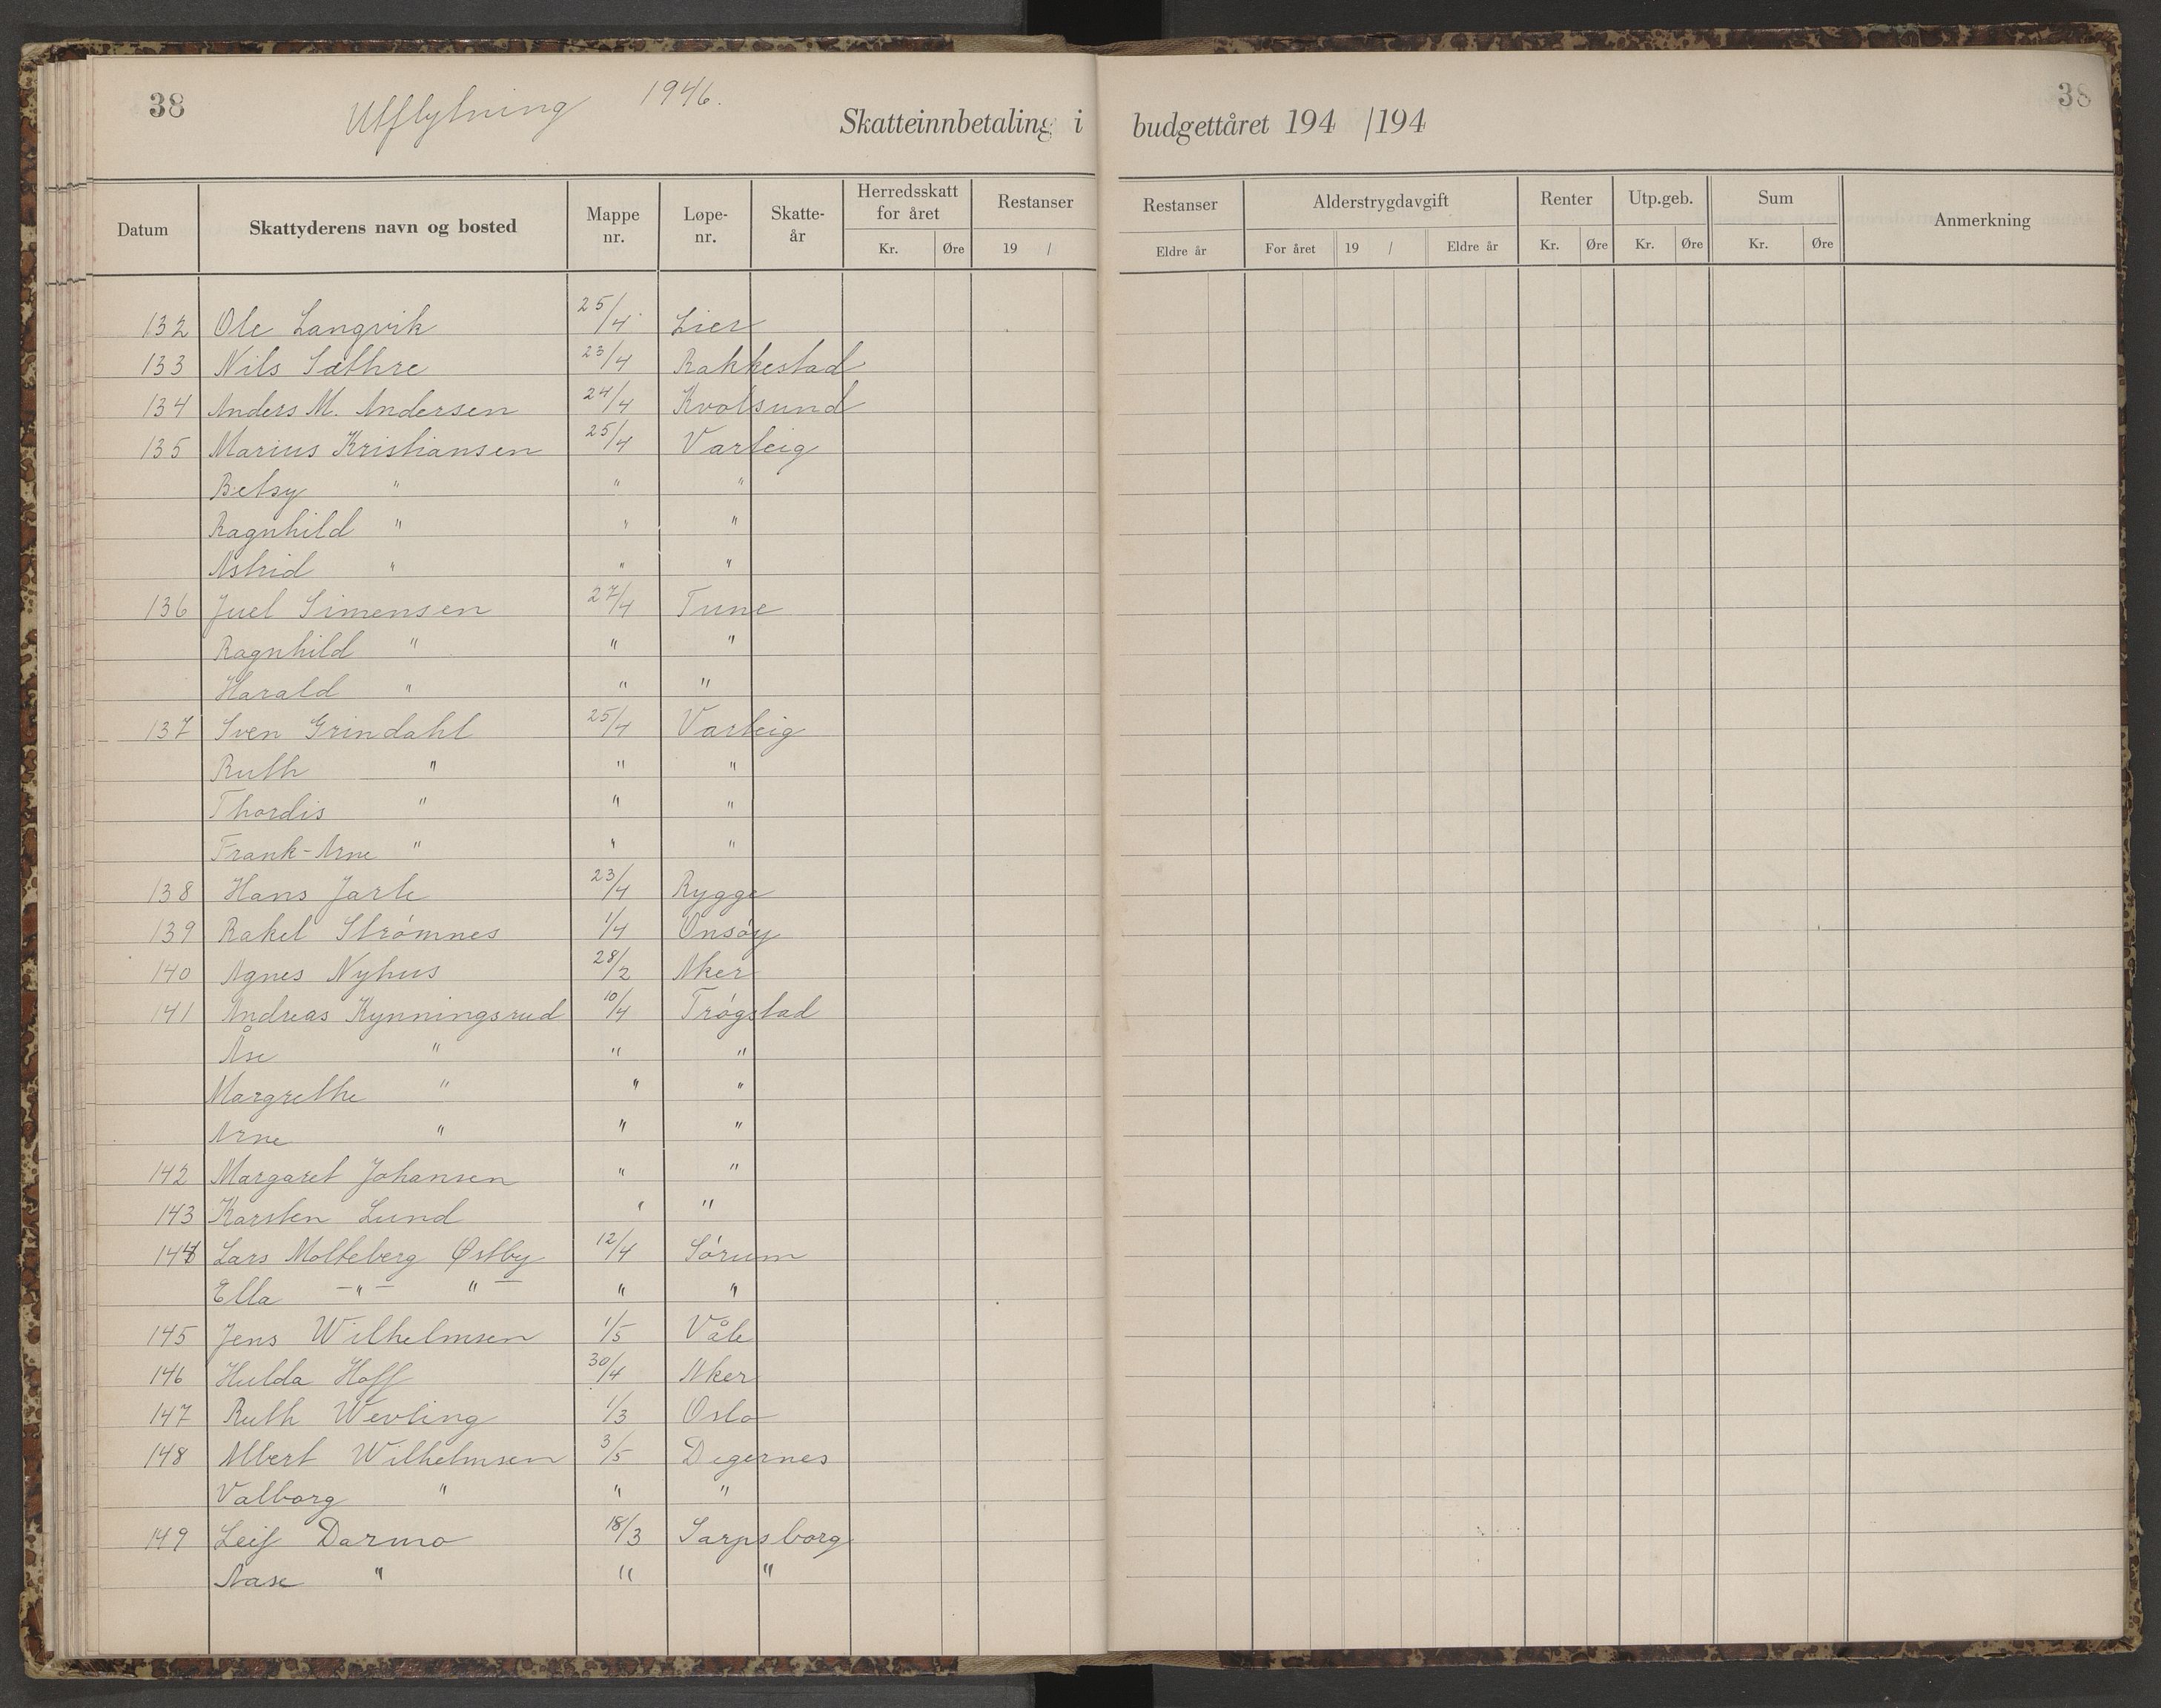 38
Utflytning 1946.
Skatteinnbetaling i budgettåret 194 /194
38
Datum Skattyderens navn og bosted Mappe nr. Løpe-nr. Skatte-år Herredsskatt for året Kr. Øre Restanser 19 / Restanser Eldre år Alderstrygdavgift For året 19 / Eldre år Renter Kr. Øre Utp.geb. Kr. Øre Sum Kr. Øre Anmerkning
132 Ole Langvik 25/4 Lier
133 Nils Sæthre 23/4 Rakkestad
134 Anders M. Andersen 24/4 Kvalsund
135 Marius Kristiansen 25/4 Varteig
Betsy " " "
Ragnhild " " "
Astrid " " "
136 Juel Simensen 27/4 Tune
Ragnhild " " "
Harald " " "
137 Sven Grindahl 25/4 Varteig
Ruth " " "
Thordis " " "
Frank-Arne " " "
138 Hans Jarle 23/4 Rygge
139 Rakel Strømnes 1/4 Onsøy
140 Agnes Nyhus 28/2 Aker
141 Andreas Kynningsrud 10/4 Trøgstad
Åse " " "
Margrethe " " "
Arne " " "
142 Margaret Johansen " "
143 Karsten Lund " "
144 Lars Molteberg Østby 12/4 Sørum
Ella –"– " – " "
145 Jens Wilhelmsen 1/5 Våle
146 Hulda Hoff 30/4 Aker
147 Ruth Wevling 1/3 Oslo
148 Albert Wilhelmsen 3/5 Degernes
Valborg " " "
149 Leif Darmo 18/3 Sarpsborg
Aase " " "